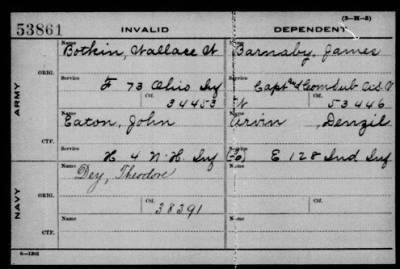 (3-H-3)
53861 INVALID DEPENDENT
Name Name
Botkin, Wallace W Barnaby, James
ORIG.
Service Service
F 73 Ohio Inf Capt
Ctf. Ctf.
34453 53446
ARMY
Eaton, John Arvin, Denzil
CTF.
Service
H 4 N.H. Inf E 128 Ind Inf
Name Name
Dey, Theodore
ORIG.
Ctf. Ctf.
38391
NAVY
Name Name
CTF.